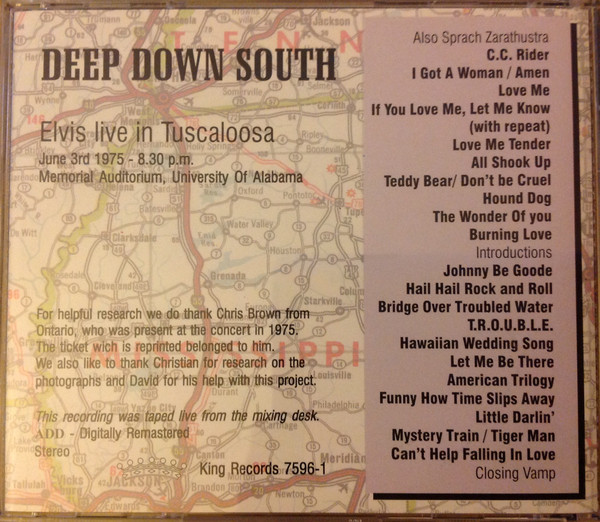 DEEP DOWN SOUTH
Elvis live in Tuscaloosa
June 3rd 1975 - 8.30 p.m.
Memorial Auditorium, University Of Alabama
For helpful research we do thank Chris Brown from
Ontario, who was present at the concert in 1975.
The ticket wich is reprinted belonged to him.
We also like to thank Christian for research on the
photographs and David for his help with this project.
This recording was taped live from the mixing desk.
ADD - Digitally Remastered
Stereo
King Records 7596-1
Also Sprach Zarathustra
C.C. Rider
I Got A Woman / Amen
Love Me
If You Love Me, Let Me Know
(with repeat)
Love Me Tender
All Shook Up
Teddy Bear/ Don't be Cruel
Hound Dog
The Wonder Of you
Burning Love
Introductions
Johnny Be Goode
Hail Hail Rock and Roll
Bridge Over Troubled Water
T.R.O.U.B.L.E.
Hawaiian Wedding Song
Let Me Be There
American Trilogy
Funny How Time Slips Away
Little Darlin'
Mystery Train / Tiger Man
Can't Help Falling In Love
Closing Vamp
TENN
MISSISSIPPI
Clarksdale
Cleveland
Grenada
Houston
Water Valley
Pontotoc
Starkville
Louisville
Philadelphia
Meridian
Newton
JACKSON
Yazoo City